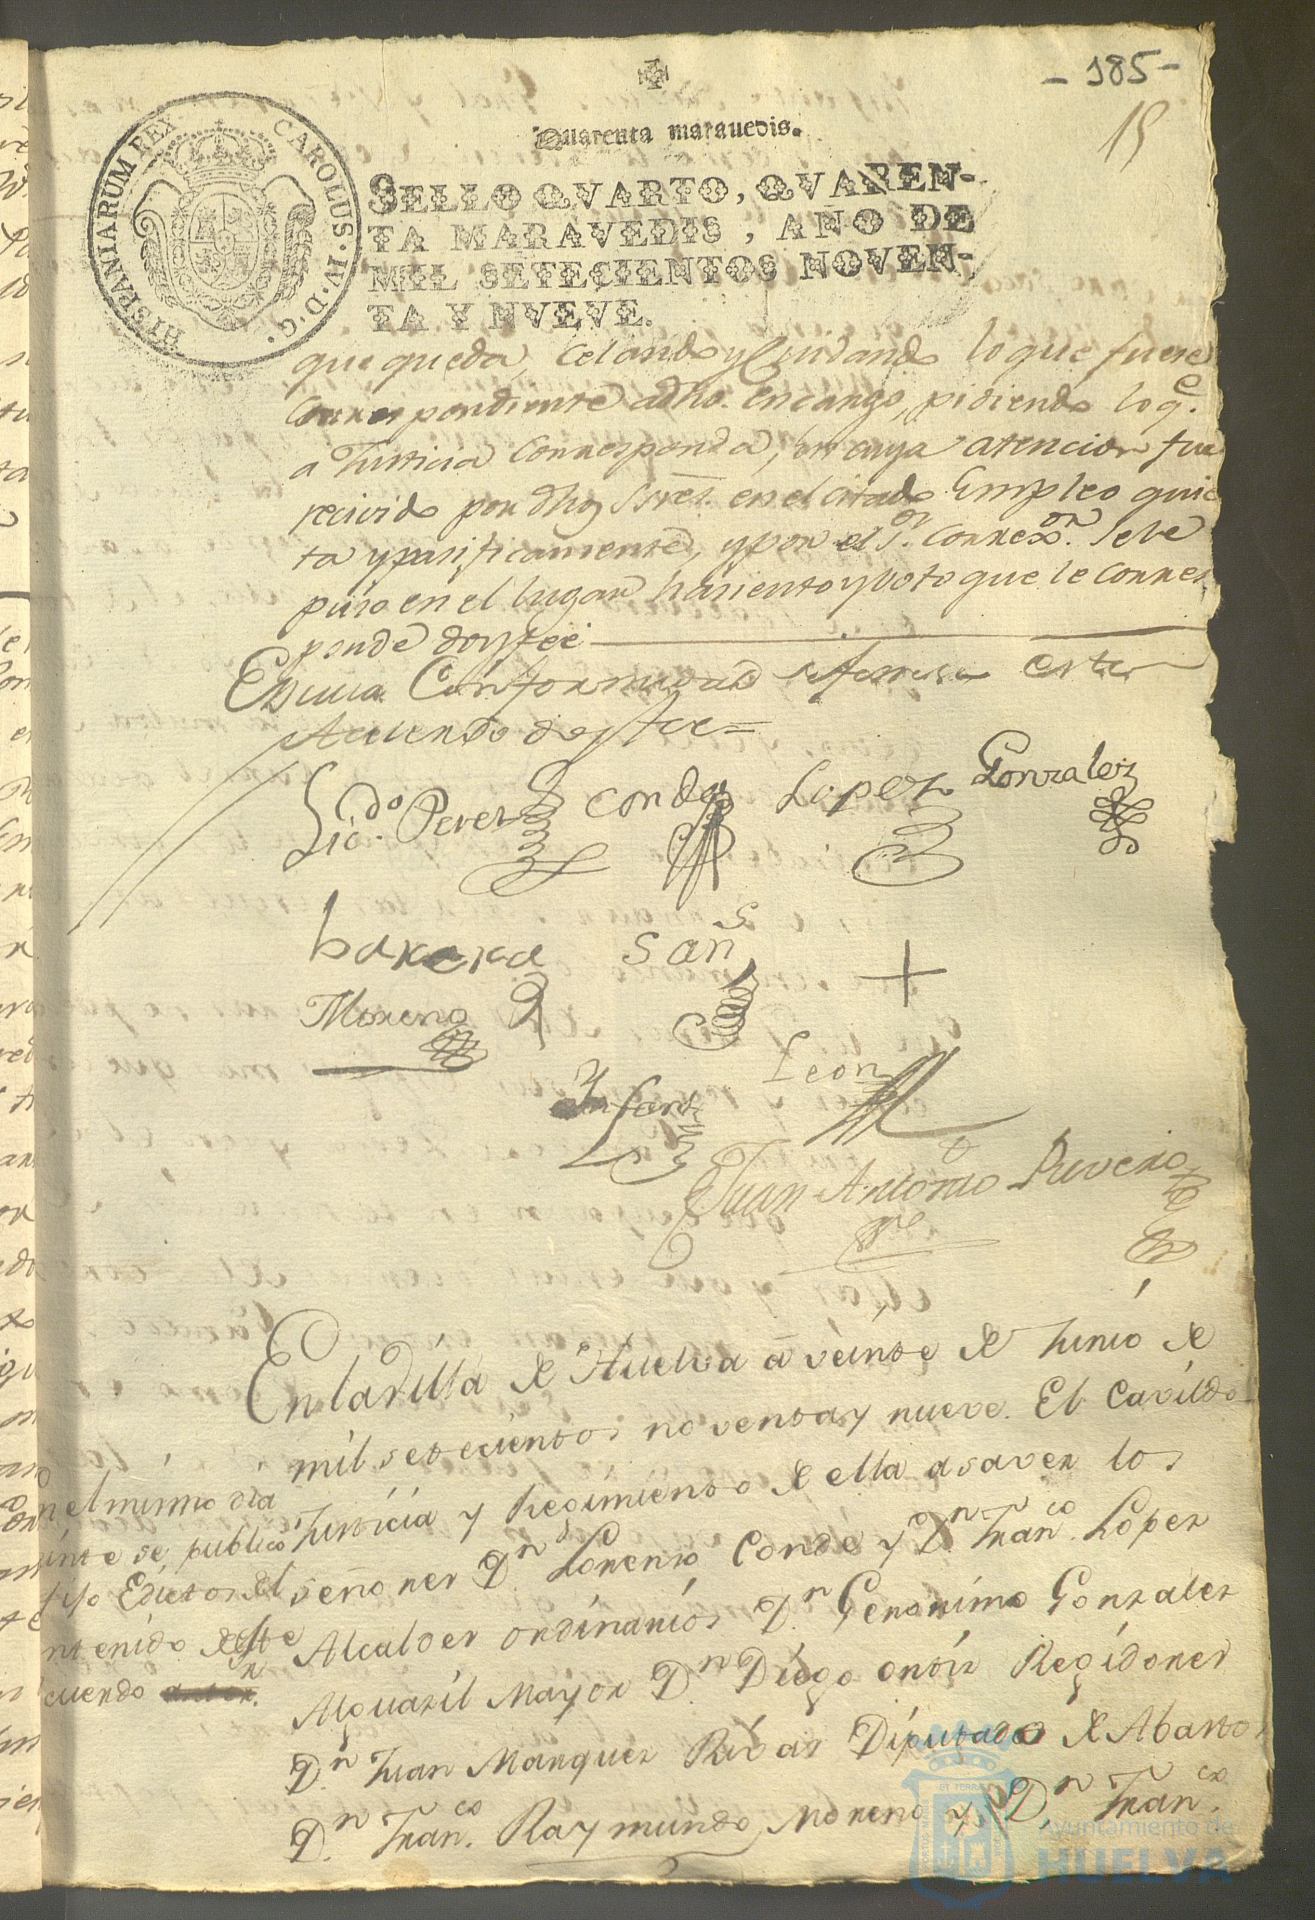 - 185 -
15
Quarenta maravedis.
HISPANIARUM REX CAROLUS·IV·D·G·
SELLO QVARTO, QVAREN-
TA MARAVEDIS, AÑO DE
MIL SETECIENTOS NOVEN-
TA Y NVEVE.
que queda, Celando y Cuidando lo que fuere
Correspondiente adho. encargo, pidiendo lo q.e
a Justicia Corresponda, en cuya atencion fue
recivido por dhos Sres. en el citado Empleo quie
ta y pasificamente, y por el S.or Correx.or Se le
puso en el lugar hasiento y Voto que le Corres
ponde doy fee
En cuia Conformidad se firma este
Acuerdo doy fee =
Licdo. Perez Conde Lopez Gonzalez
barrera Sañs +
Moreno
Leon
Infante
Juan Antonio Rivero
En la Villa de Huelva a veinte de Junio de
mil setecientos noventa y nueve. El Cavildo
Justicia y Regimiento de ella asaver los
señores D.n Lorenzo Conde y D.n Fran.co Lopez
Alcaldes ordinarios D.n Geronimo Gonzalez
Alguazil Mayor D.n Diego ortiz Regidores
D.n Juan Marquez Rivas Diputado de Abastos
D.n Fran.co Raymundo Moreno y D.n Fran.co
n el mismo dia
se publico
fijo Edictos del
ntenido deste
cuerdo
Ayuntamiento de
HUELVA